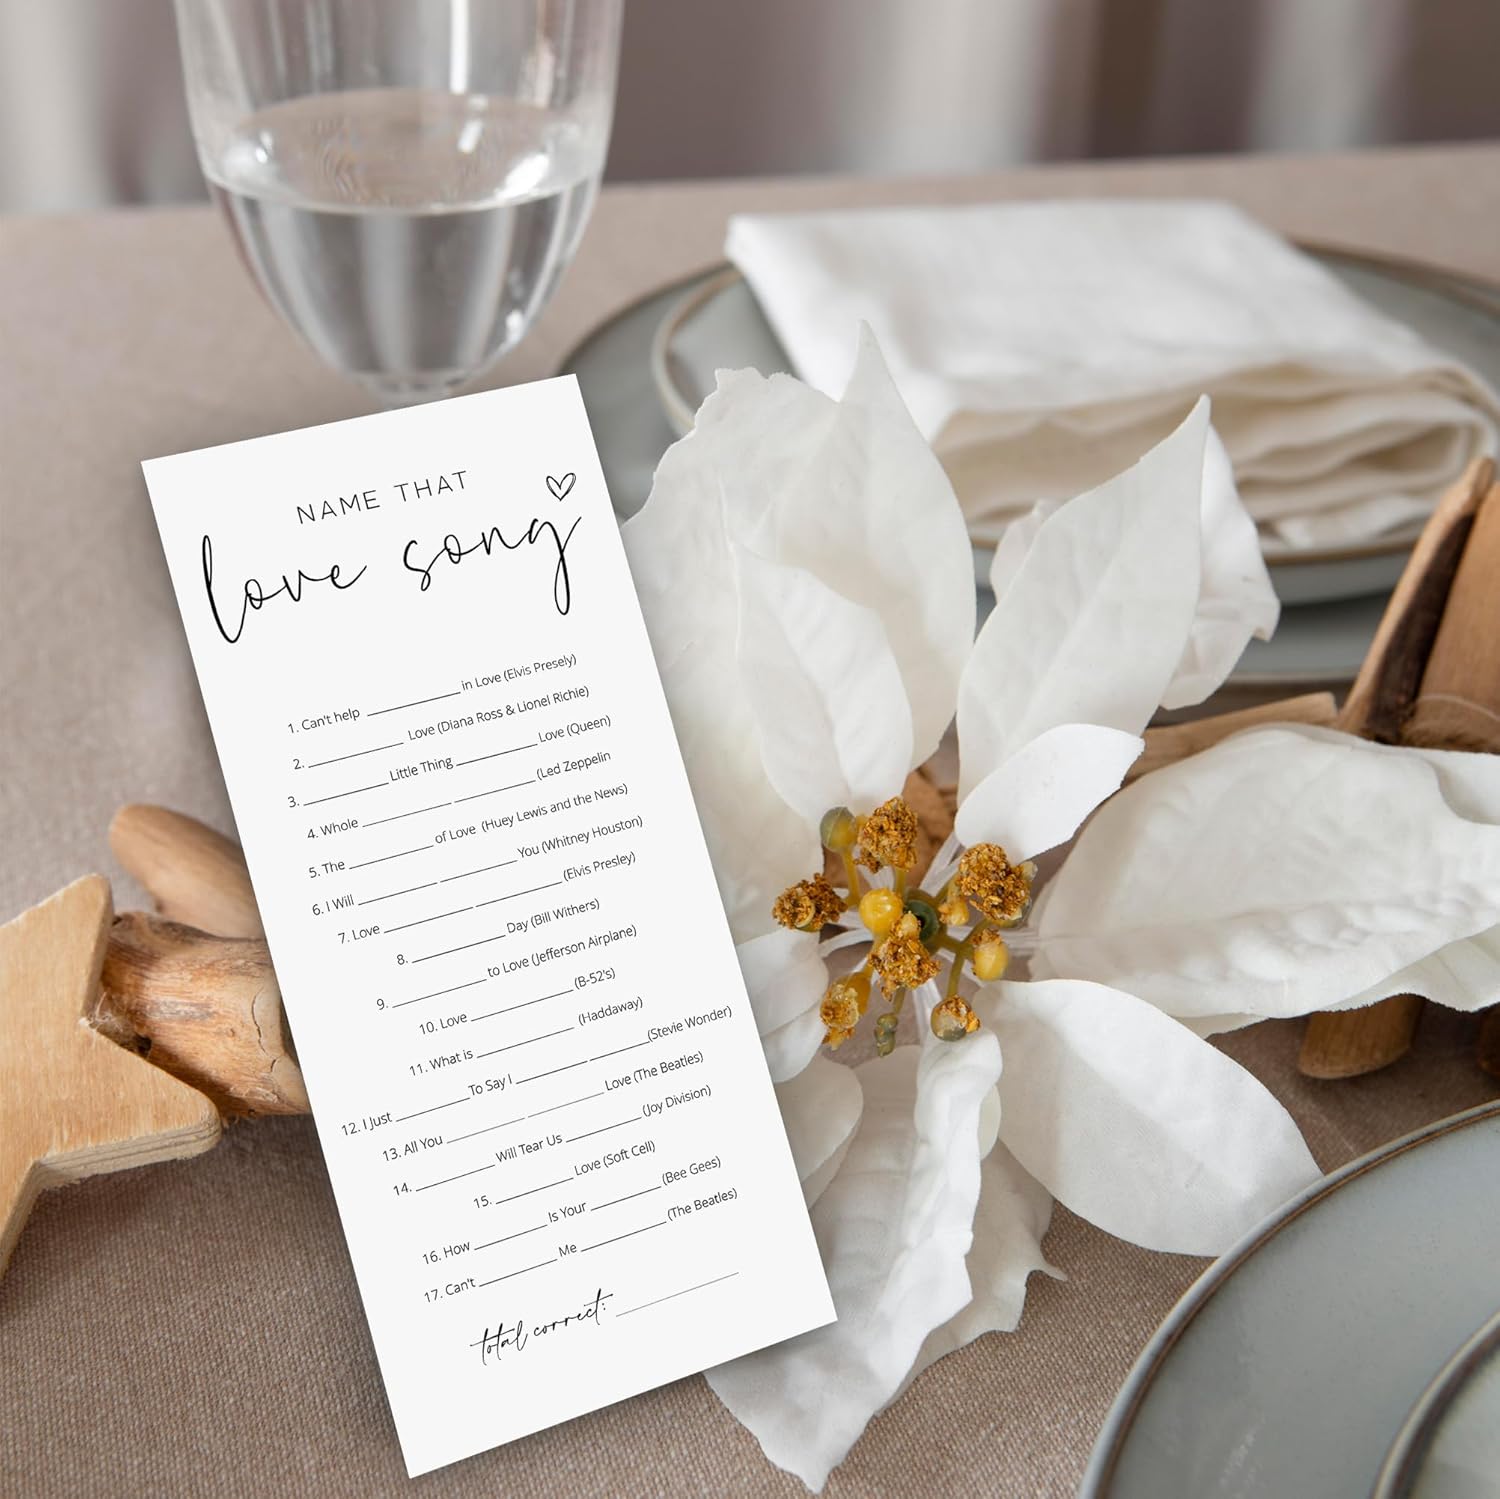 NAME THAT
love song
1. Can't help __________ in Love (Elvis Presely)
2. __________ Love (Diana Ross & Lionel Richie)
3. __________ Little Thing __________ Love (Queen)
4. Whole __________ __________ (Led Zeppelin
5. The __________ of Love (Huey Lewis and the News)
6. I Will __________ __________ You (Whitney Houston)
7. Love __________ __________ (Elvis Presley)
8. __________ Day (Bill Withers)
9. __________ to Love (Jefferson Airplane)
10. Love __________ (B-52's)
11. What is __________ (Haddaway)
12. I Just __________ To Say I __________ __________ (Stevie Wonder)
13. All You __________ __________ Love (The Beatles)
14. __________ Will Tear Us __________ (Joy Division)
15. __________ Love (Soft Cell)
16. How __________ Is Your __________ (Bee Gees)
17. Can't __________ Me __________ (The Beatles)
total correct: __________